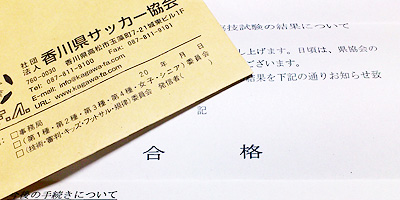 社団法人 香川県サッカー協会
〒760-0030 香川県高松市玉藻町7-21城東ビル1F
Tel: 087-811-8100 Fax: 087-811-9101
E-mail: info@kagawa-fa.com
URL: www.kagawa-fa.com
20 年 月 日
□事務局 発信者( )
□(第1種・第2種・第3種・第4種・女子・シニア)委員会
□(技術・審判・キッズ・フットサル・規律)委員会
技試験の結果について
し上げます。日頃は、県協会の
ございます。
結果を下記の通りお知らせ致
記
合 格
後の手続きについて